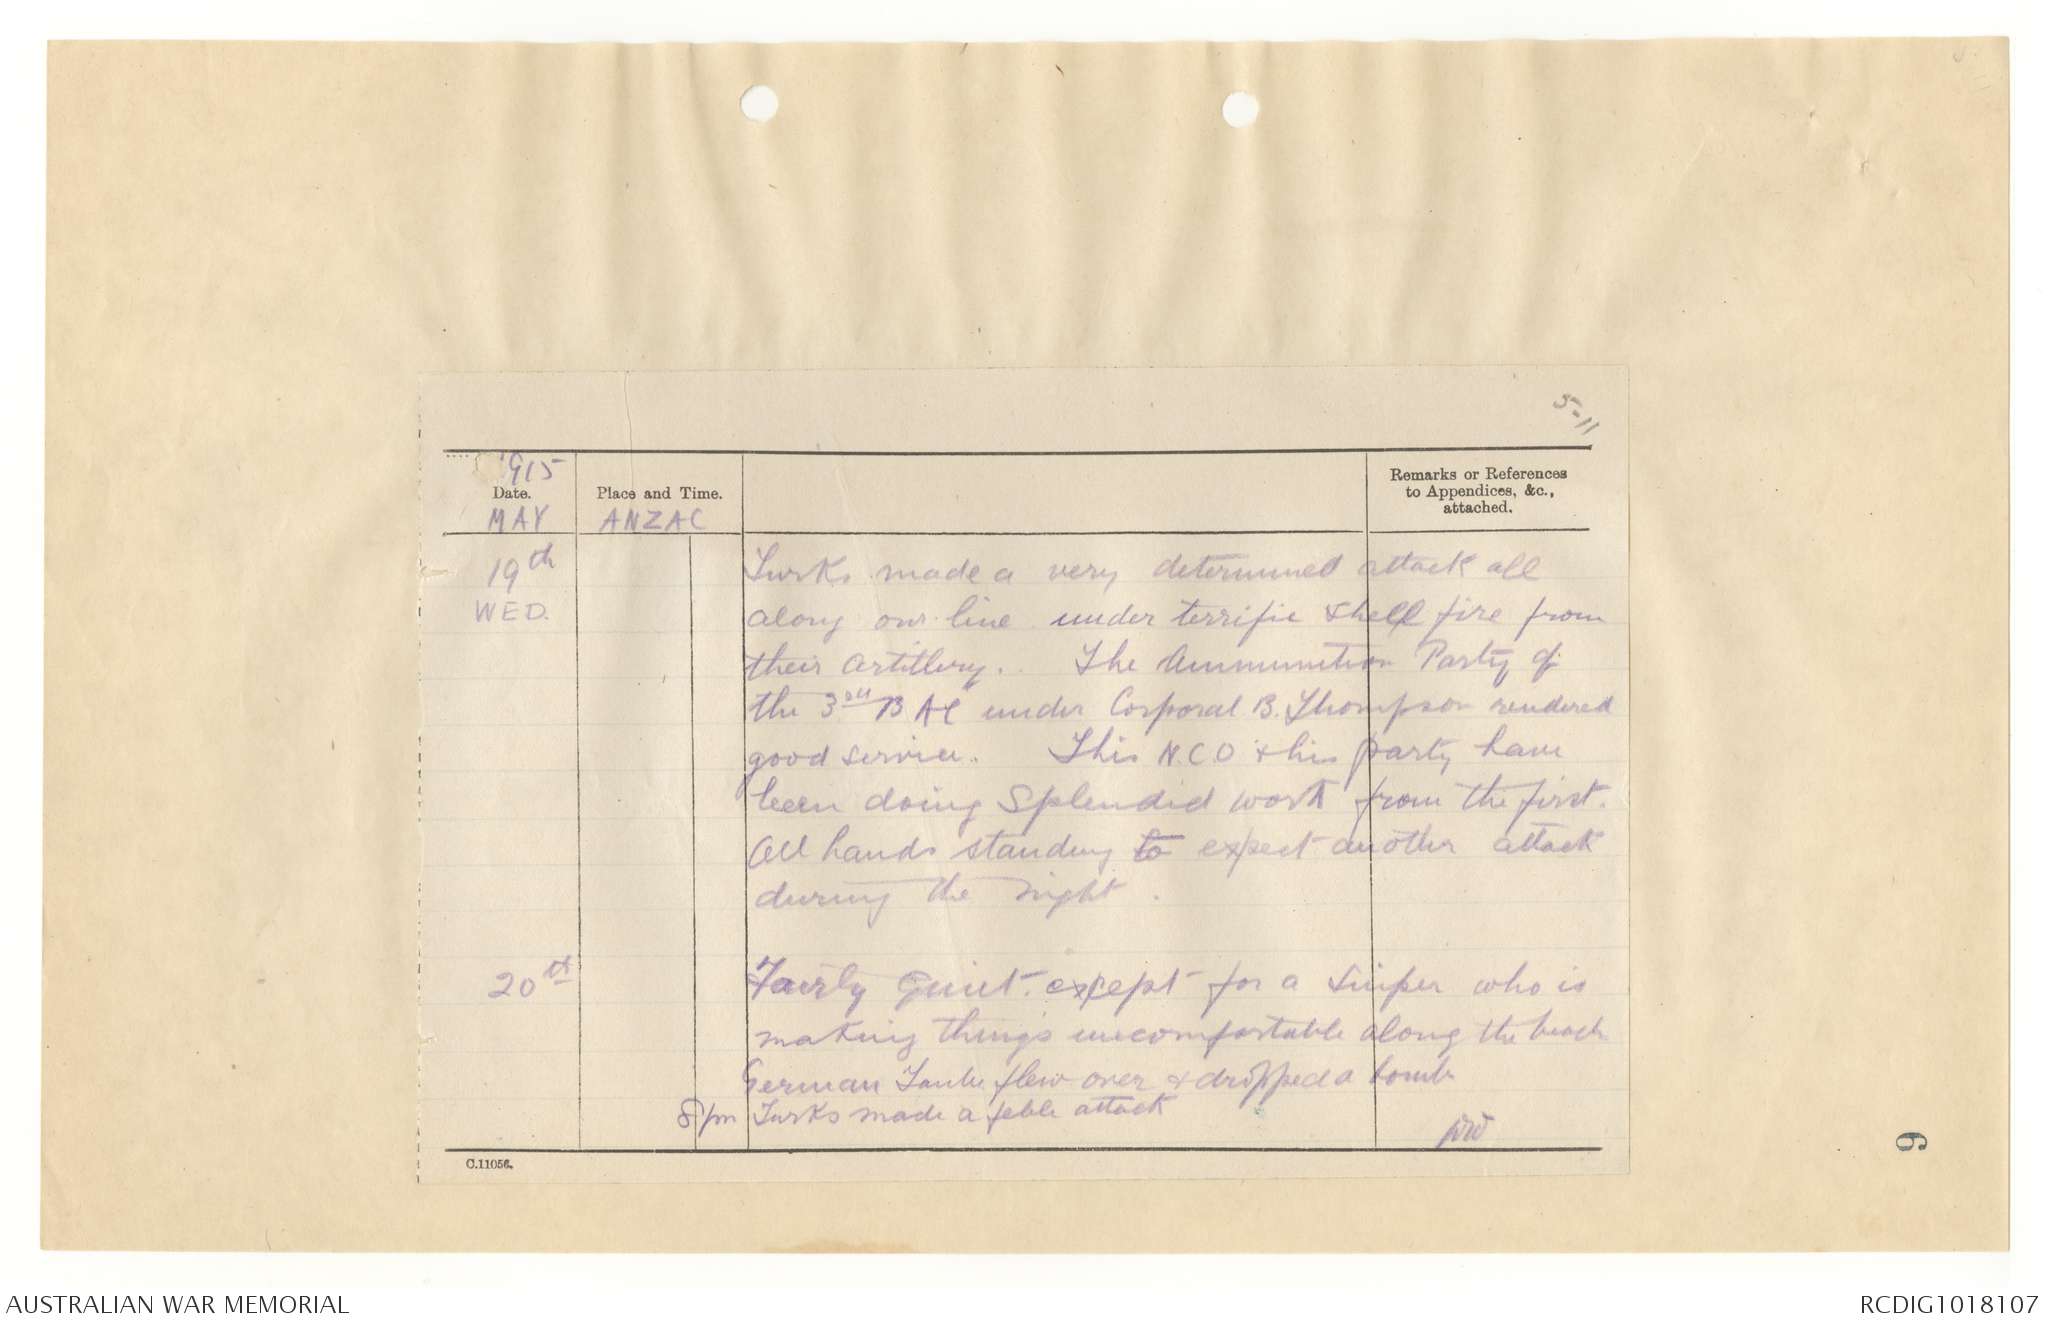 5-11
1915
Date.
MAY
Place and Time.
ANZAC
Remarks or References
to Appendices, &c.,
attached.
19th
WED.
Turks made a very determined attack all
along our line under terrific shell fire from
their artillery. The Ammunition Party of
the 3rd BAC under Corporal B. Thompson rendered
good service. This N.C.O & his party have
been doing splendid work from the first.
All hands standing to expect another attack
during the night.
20th
Fairly Quiet. except for a sniper who is
making things uncomfortable along the beach
German Taube flew over & dropped a bomb
8 pm Turks made a feble attack
C.11056.
9
AUSTRALIAN WAR MEMORIAL
RCDIG1018107